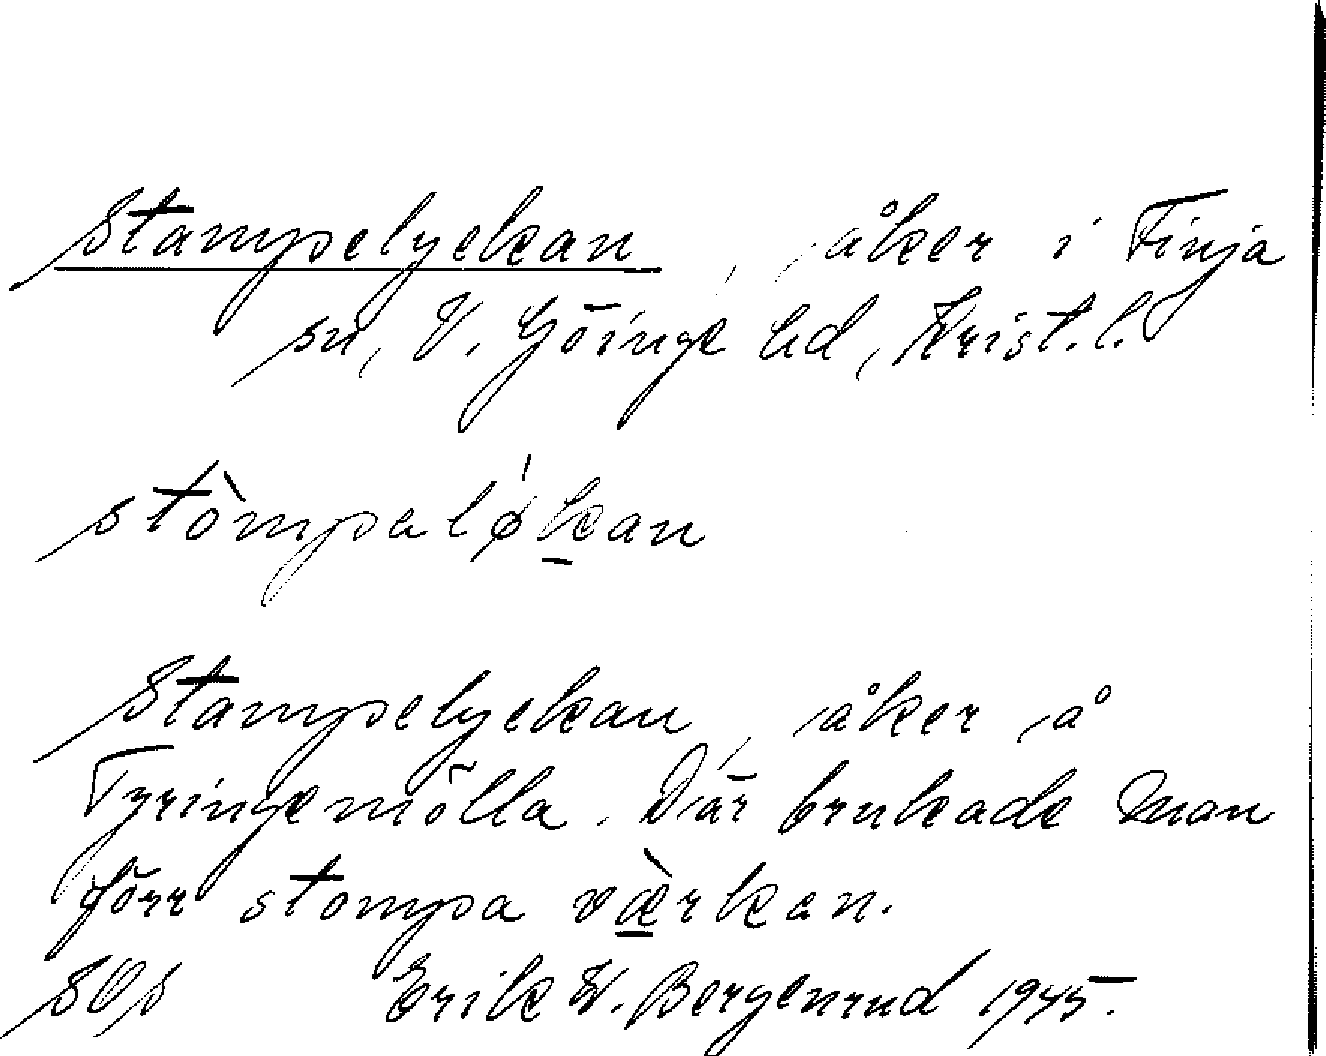 Stampelyckan, åker i Finja
sn, V. Göinge hd, Krist. l.
stòmpalǿkan
Stampelyckan, åker å
Tyringemölla. Där brukade man
förr stompa værkan.
Erik W. Bergenrud 1945.